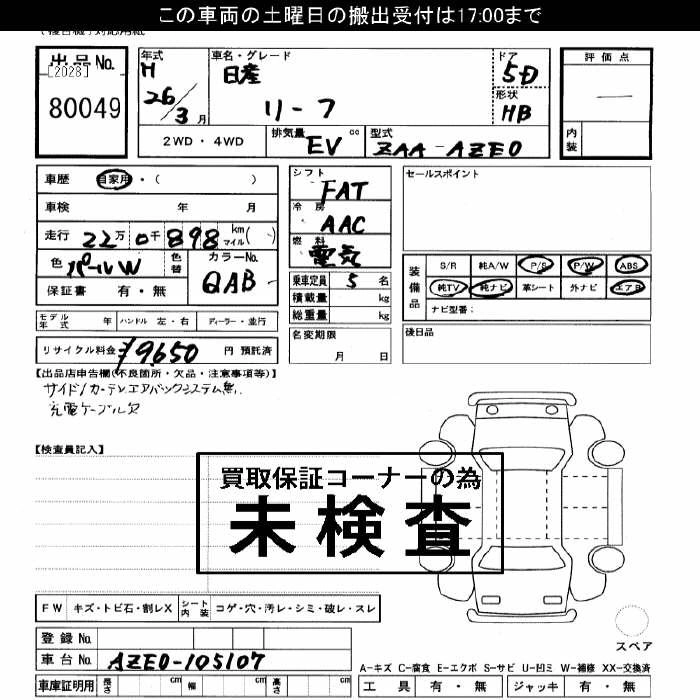 この車両の土曜日の搬出受付は17:00まで
出品No.
[2028]
80049
年式
H
26/3月
車名・グレード
日産
リーフ
ドア
5D
形状
HB
評価点
―
内装
2WD・4WD
排気量
EV
cc
型式
ZAA-AZE0
車歴
自家用・( )
車検 年 月
走行 22万0千898 km マイル( )
色 パールW 色替
カラーNo.
QAB
保証書 有・無
シフト
FAT
冷房
AAC
燃料
電気
乗車定員 5 名
積載量 kg
総重量 kg
セールスポイント
装備品
S/R 純A/W P/S P/W ABS
純TV 純ナビ 革シート 外ナビ エアB
ナビ型番:
モデル年式 年 ハンドル 左・右 ディーラー・並行
リサイクル料金 ¥9650 円 預託済
名変期限
月 日
後日品
【出品店申告欄(不良箇所・欠品・注意事項等)】
サイド/カーテンエアバックシステム無し
充電ケーブル欠
【検査員記入】
買取保証コーナーの為
未検査
FW キズ・トビ石・割レX シート内装 コゲ・穴・汚レ・シミ・破レ・スレ
登録No.
車台No. AZE0-105107
車庫証明用 長さ cm 幅 cm 高さ cm
スペア
A-キズ C-腐食 E-エクボ S-サビ U-凹ミ W-補修 XX-交換済
工具 有・無 ジャッキ 有・無